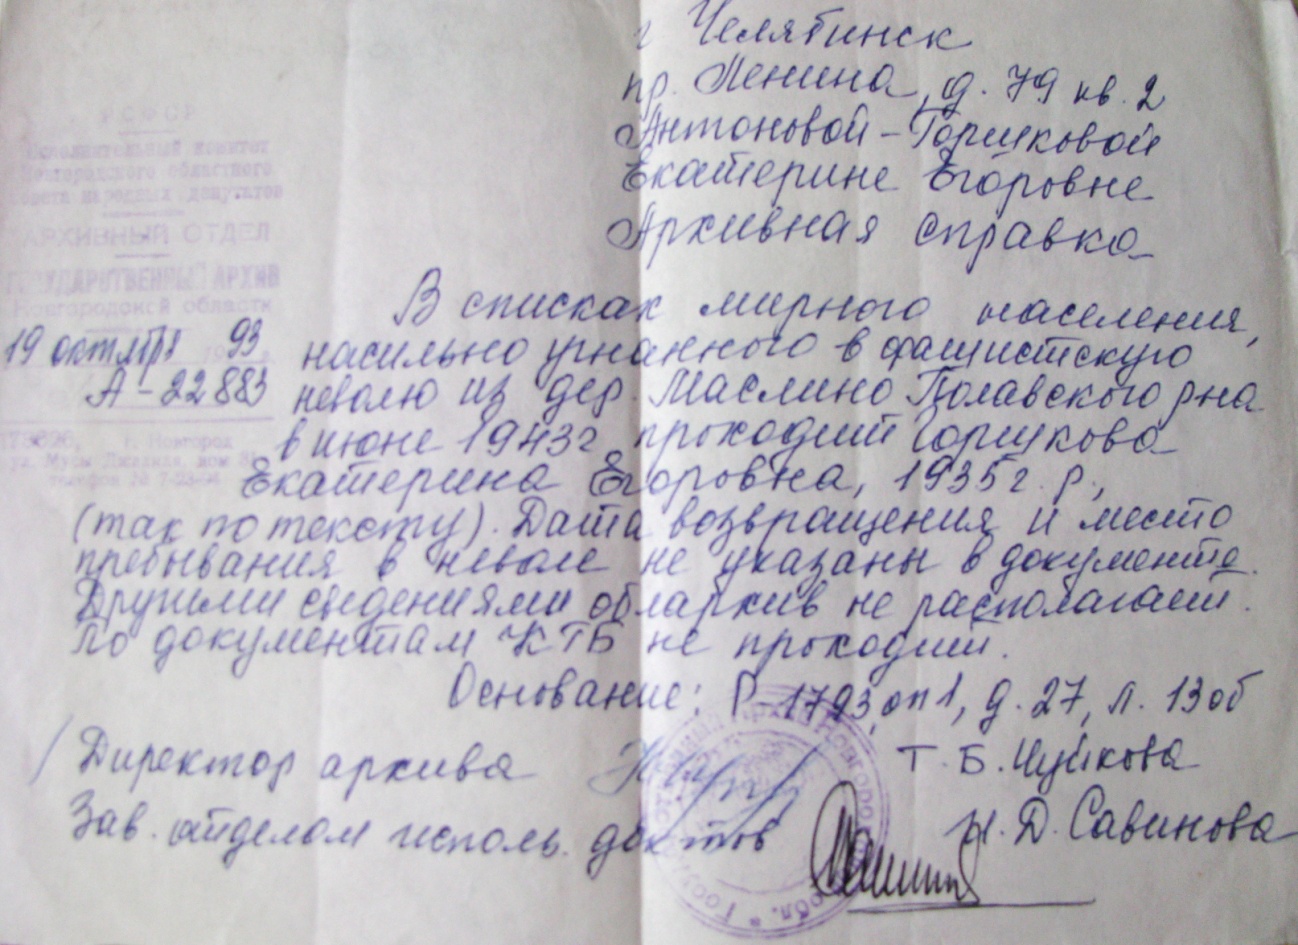 г Челябинск
пр. Ленина, д. 79 кв. 2
Антоновой-Горшковой
Екатерине Егоровне
Архивная справка
РСФСР
Исполнительный комитет
Новгородского областного
Совета народных депутатов
АРХИВНЫЙ ОТДЕЛ
ГОСУДАРСТВЕННЫЙ АРХИВ
Новгородской области
19 октября 1993 г.
А-22883
г. Новгород
ул. Мусы Джалиля, дом
телефон №
В списках мирного населения,
насильно угнанного в фашистскую
неволю из дер. Маслино Полавского рна
в июне 1943г проходит Горшкова
Екатерина Егоровна, 1935 г. р.,
(так по тексту). Дата возвращения и место
пребывания в неволе не указаны в документе.
Другими сведениями облархив не располагает.
По документам КТБ не проходит.
Основание: Р-1793, оп 1, д. 27, л. 13об
Директор архива Т. Б. Чуйкова
Зав. отделом исполь. док-тов Н. Д. Савинова